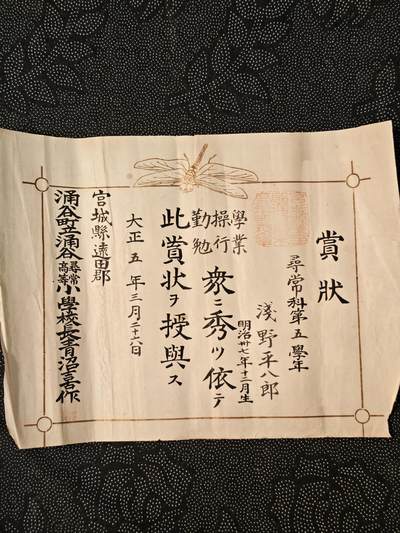 賞狀
尋常科第五學年
淺野平八郎
明治卅七年十二月生
學業
操行
勤勉
衆ニ秀ツ依テ
此賞狀ヲ授與ス
大正五年三月二十六日
宮城縣遠田郡
涌谷町立涌谷尋常高等小學校長青沼喜作